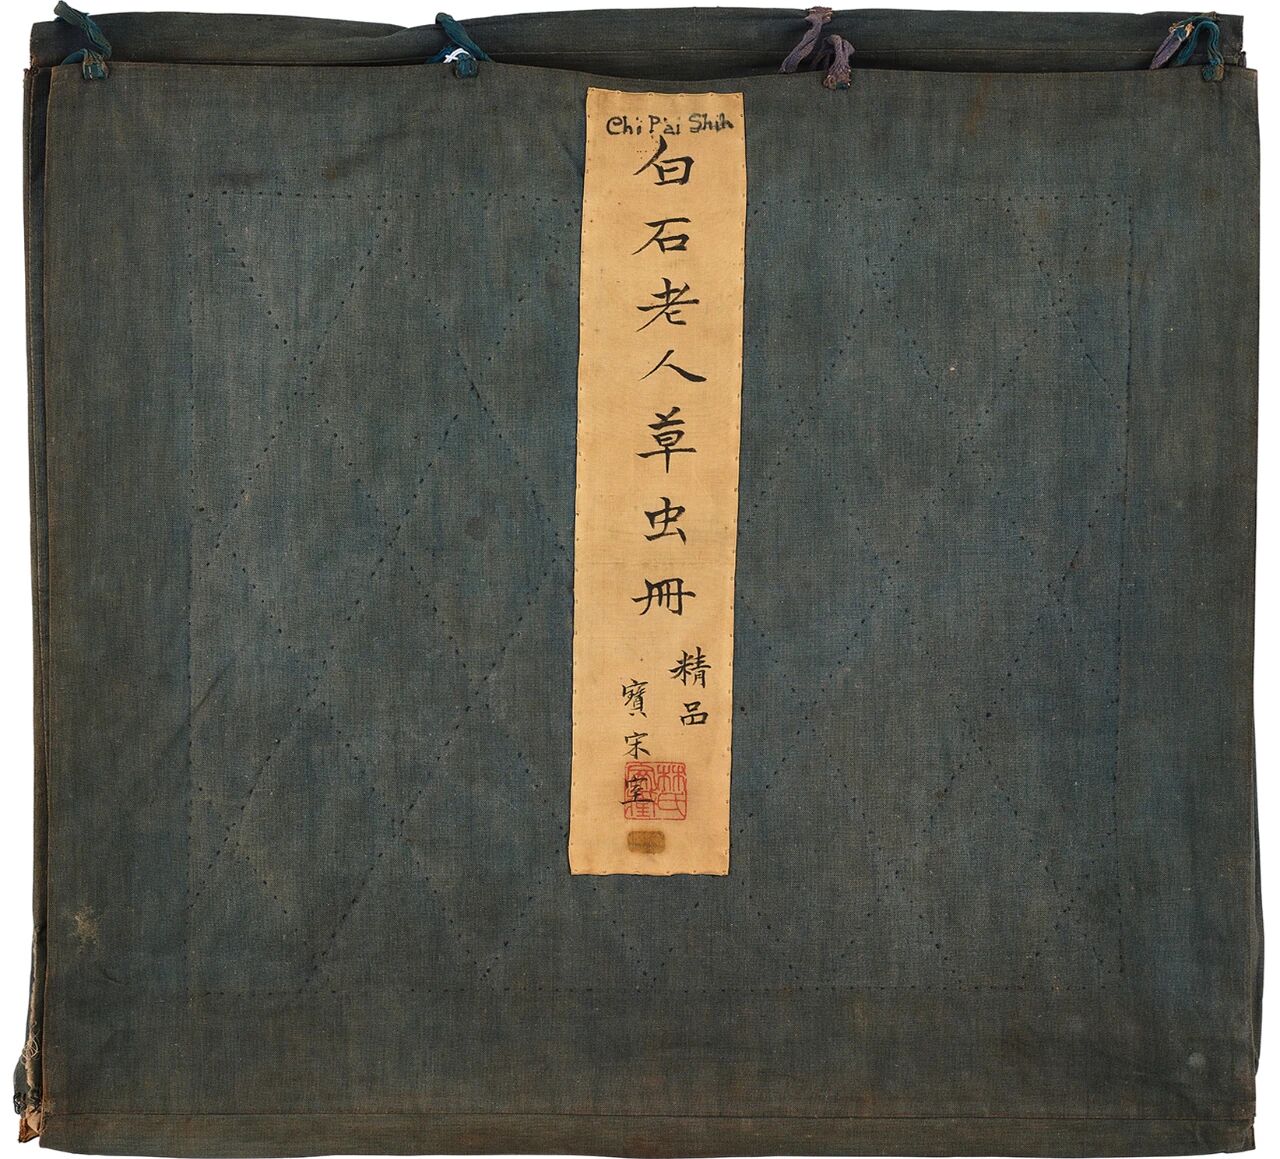 Chi Pai Shih
白石老人草虫冊
精品
寶宋室